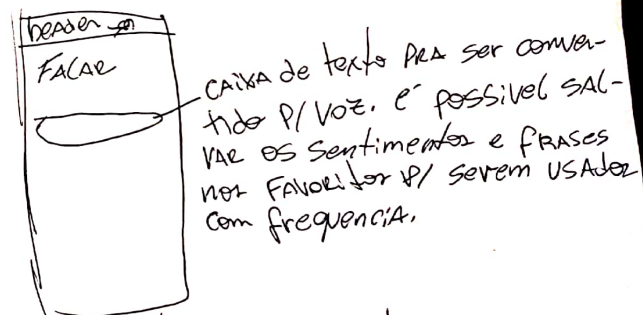 header
FALAR
CAIXA de texto PRA ser conver-
tido P/ VOZ. é possivel SAL-
VAR os sentimentos e FRASES
nos FAVORITOS P/ serem USAdos
com frequenciA.